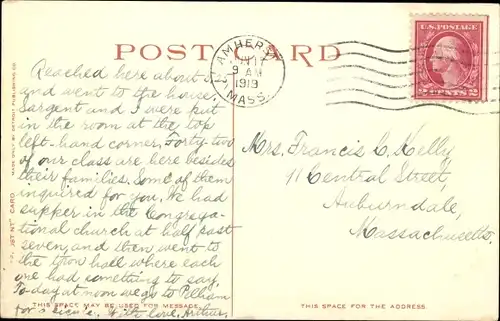 POST CARD
AMHERST
JUN 17
9 AM
1919
MASS.
U.S. POSTAGE
2 CENTS 2
Reached here about 5:20
and went to the house.
Sargent and I were put
in the room at the top
left-hand corner. Forty-two
of our class are here besides
their families. Some of them
inquired for you. We had
supper in the Congrega-
tional church at half past
seven, and then went to
the town hall where each
one had something to say.
Today at noon we go to Pelham
for a picnic. With love, Arthur.
Mrs. Francis C. Kelly,
11 Central Street,
Auburndale,
Massachusetts.
THIS SPACE MAY BE USED FOR MESSAGE.
THIS SPACE FOR THE ADDRESS.
MADE ONLY BY DETROIT PUBLISHING CO.